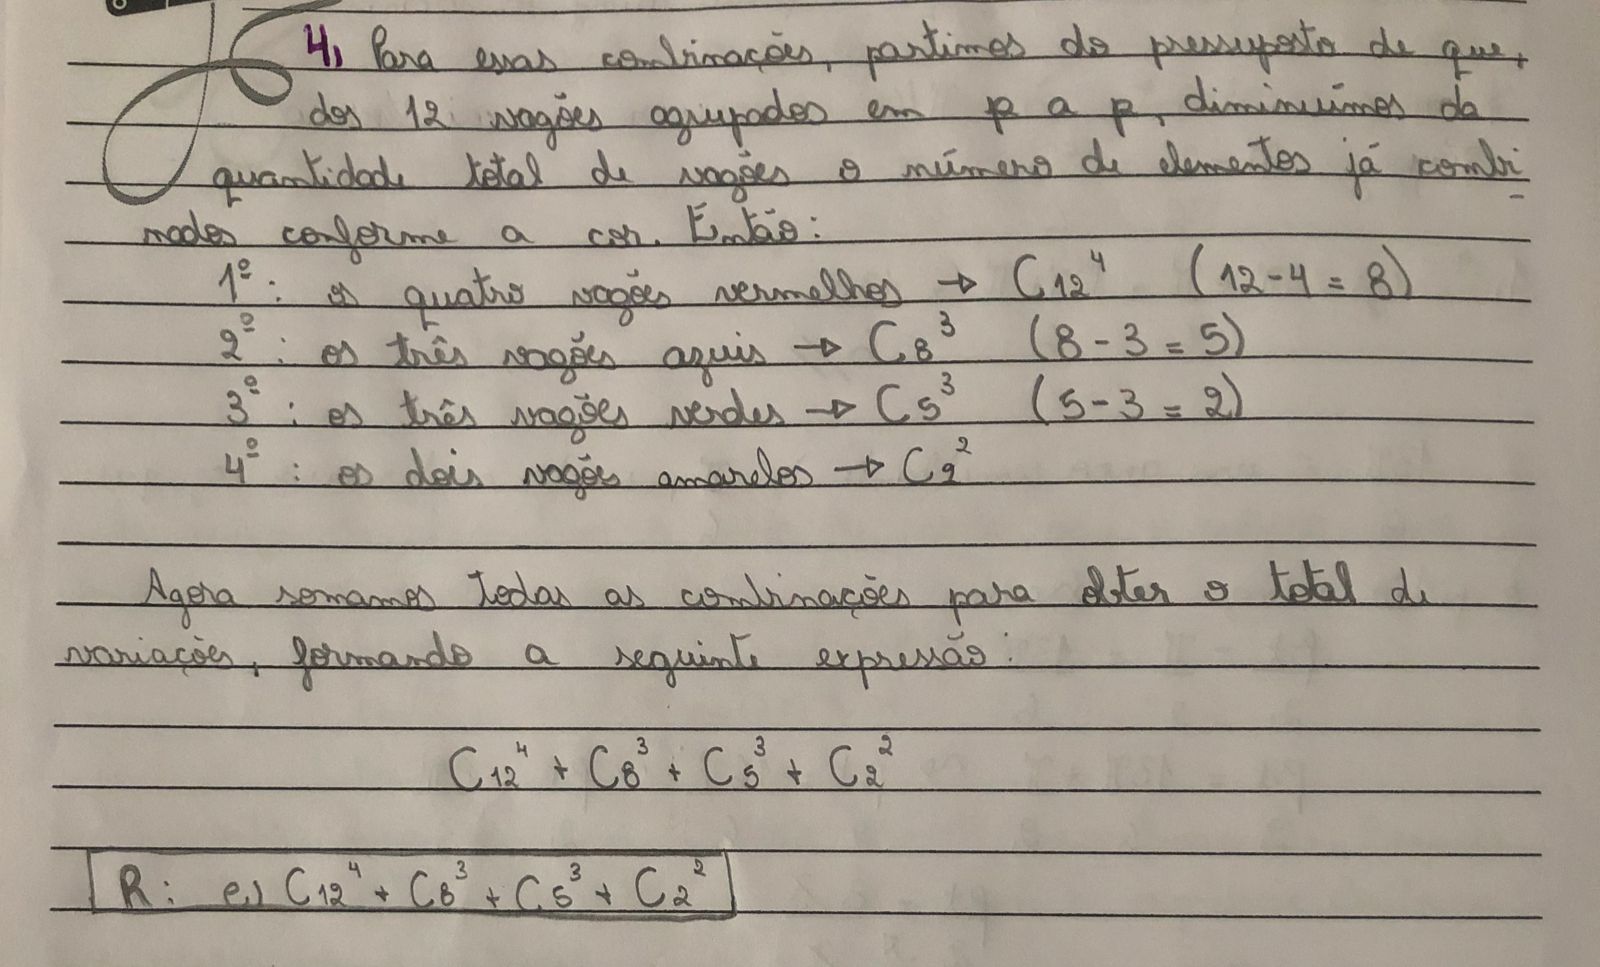 4, Para essas combinações, partimos do pressuposto de que,
dos 12 vagões agrupados em p a p, diminuímos da
quantidade total de vagões o número de elementos já combi-
nados conforme a cor. Então:
1º: os quatro vagões vermelhos → C₁₂⁴ (12-4=8)
2º: os três vagões azuis → C₈³ (8-3=5)
3º: os três vagões verdes → C₅³ (5-3=2)
4º: os dois vagões amarelos → C₂²
Agora somamos todas as combinações para obter o total de
variações, formando a seguinte expressão:
C₁₂⁴ + C₈³ + C₅³ + C₂²
R: e) C₁₂⁴ + C₈³ + C₅³ + C₂²